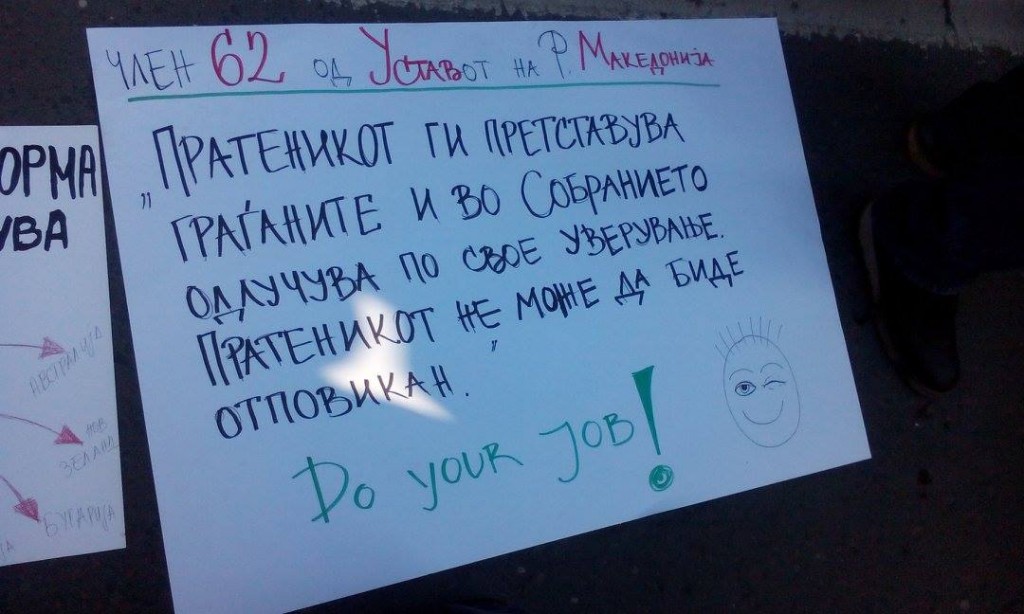 ЧЛЕН 62 ОД УСТАВОТ НА Р. МАКЕДОНИЈА
„ПРАТЕНИКОТ ГИ ПРЕТСТАВУВА
ГРАЃАНИТЕ И ВО СОБРАНИЕТО
ОДЛУЧУВА ПО СВОЕ УВЕРУВАЊЕ.
ПРАТЕНИКОТ НЕ МОЖЕ ДА БИДЕ
ОТПОВИКАН.”
DO YOUR JOB!
ОРМА
УВА
АВСТРАЛИЈА
НОВ
ЗЕЛАНД
БУГАРИЈА